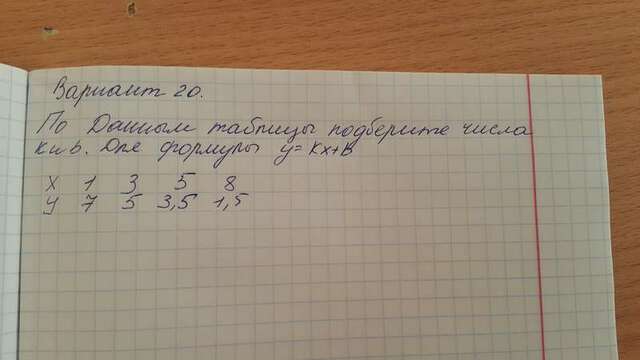 Вариант 20.
По Данным таблицы подберите числа
к и в. Для формулы y = кх+в
X 1 3 5 8
У 7 5 3,5 1,5